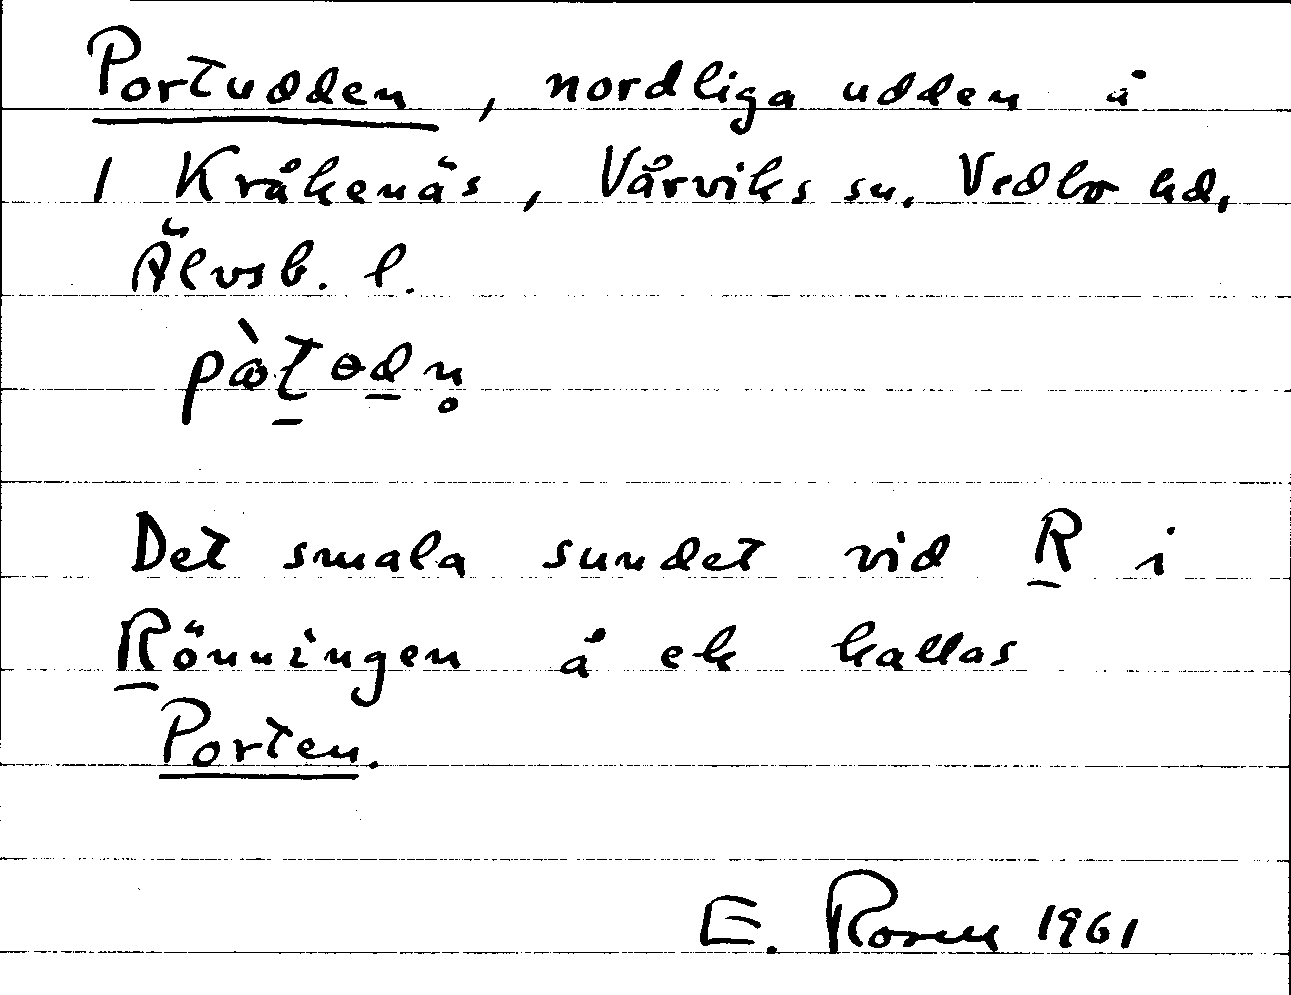 Portudden, nordliga udden å
1 Kråkenäs, Vårviks sn, Vedbo hd,
Älvsb. l.
Det smala sundet vid R i
Rönningen å ek kallas
Porten.
E. Rosell 1961